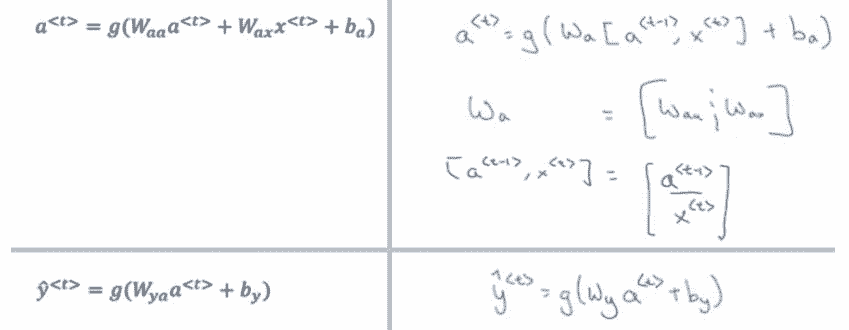 a^{<t>} = g(W_{aa}a^{<t>} + W_{ax}x^{<t>} + b_a)
a^{<t>} = g(W_a [a^{<t-1>}, x^{<t>}] + b_a)
W_a = [W_{aa} ; W_{ax}]
[a^{<t-1>}, x^{<t>}] = [a^{<t-1>} / x^{<t>}]
ŷ^{<t>} = g(W_{ya}a^{<t>} + b_y)
ŷ^{<t>} = g(W_y a^{<t>} + b_y)